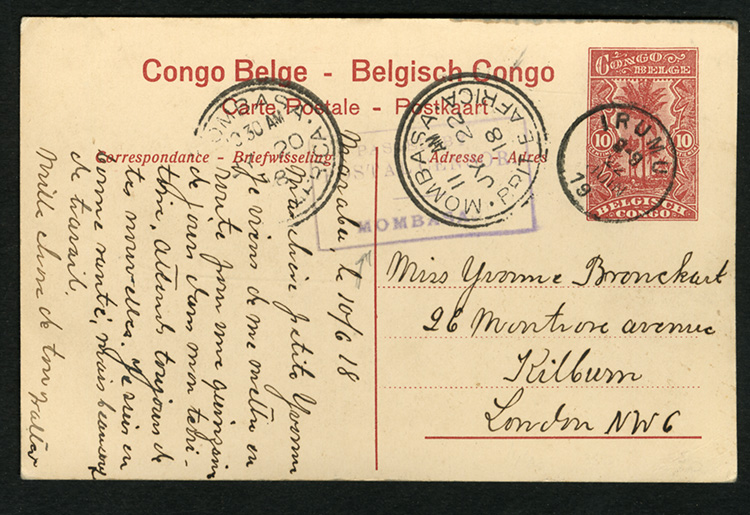 Congo Belge - Belgisch Congo
Carte Postale - Postkaart
Correspondance - Briefwisseling
Adresse - Adres
CONGO BELGE
10 10
BELGISCH CONGO
IRUMU
19
MOMBASA
10 30 AM
20
MOMBASA
11 AM
22
JY
18
BR. E. AFRICA
MOMBASA
le 10/6 18
Ma chère petite Yvonne
Je viens de me mettre en
route pour une quinzaine
de jours dans mon terri-
toire, attends toujours de
tes nouvelles. Je suis en
bonne santé, mais beaucoup
de travail.
Mille choses de ton
Miss Yvonne Bronckart
26 Montrose avenue
Kilburn
London NW6